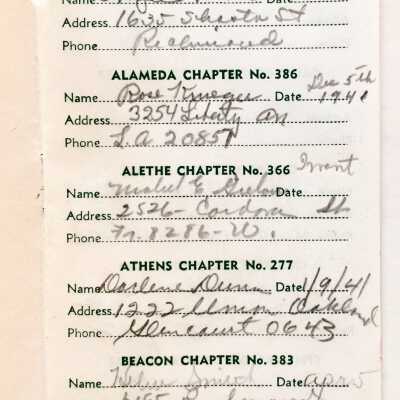 Name Date
Address 1635 Shasta St
Phone Richmond
ALAMEDA CHAPTER No. 386
Name Rose Krueger Date Dec 5th 1941
Address 3254 Liberty av
Phone LA 20857
ALETHE CHAPTER No. 366
Grant
Name Mabel E. Date
Address 2526- Cordova St
Phone Fr. 8286-W.
ATHENS CHAPTER No. 277
Name Darlene Dunn Date 1/9/41
Address 1222 Union Oakland
Phone Glencourt 0643
BEACON CHAPTER No. 383
Name Date